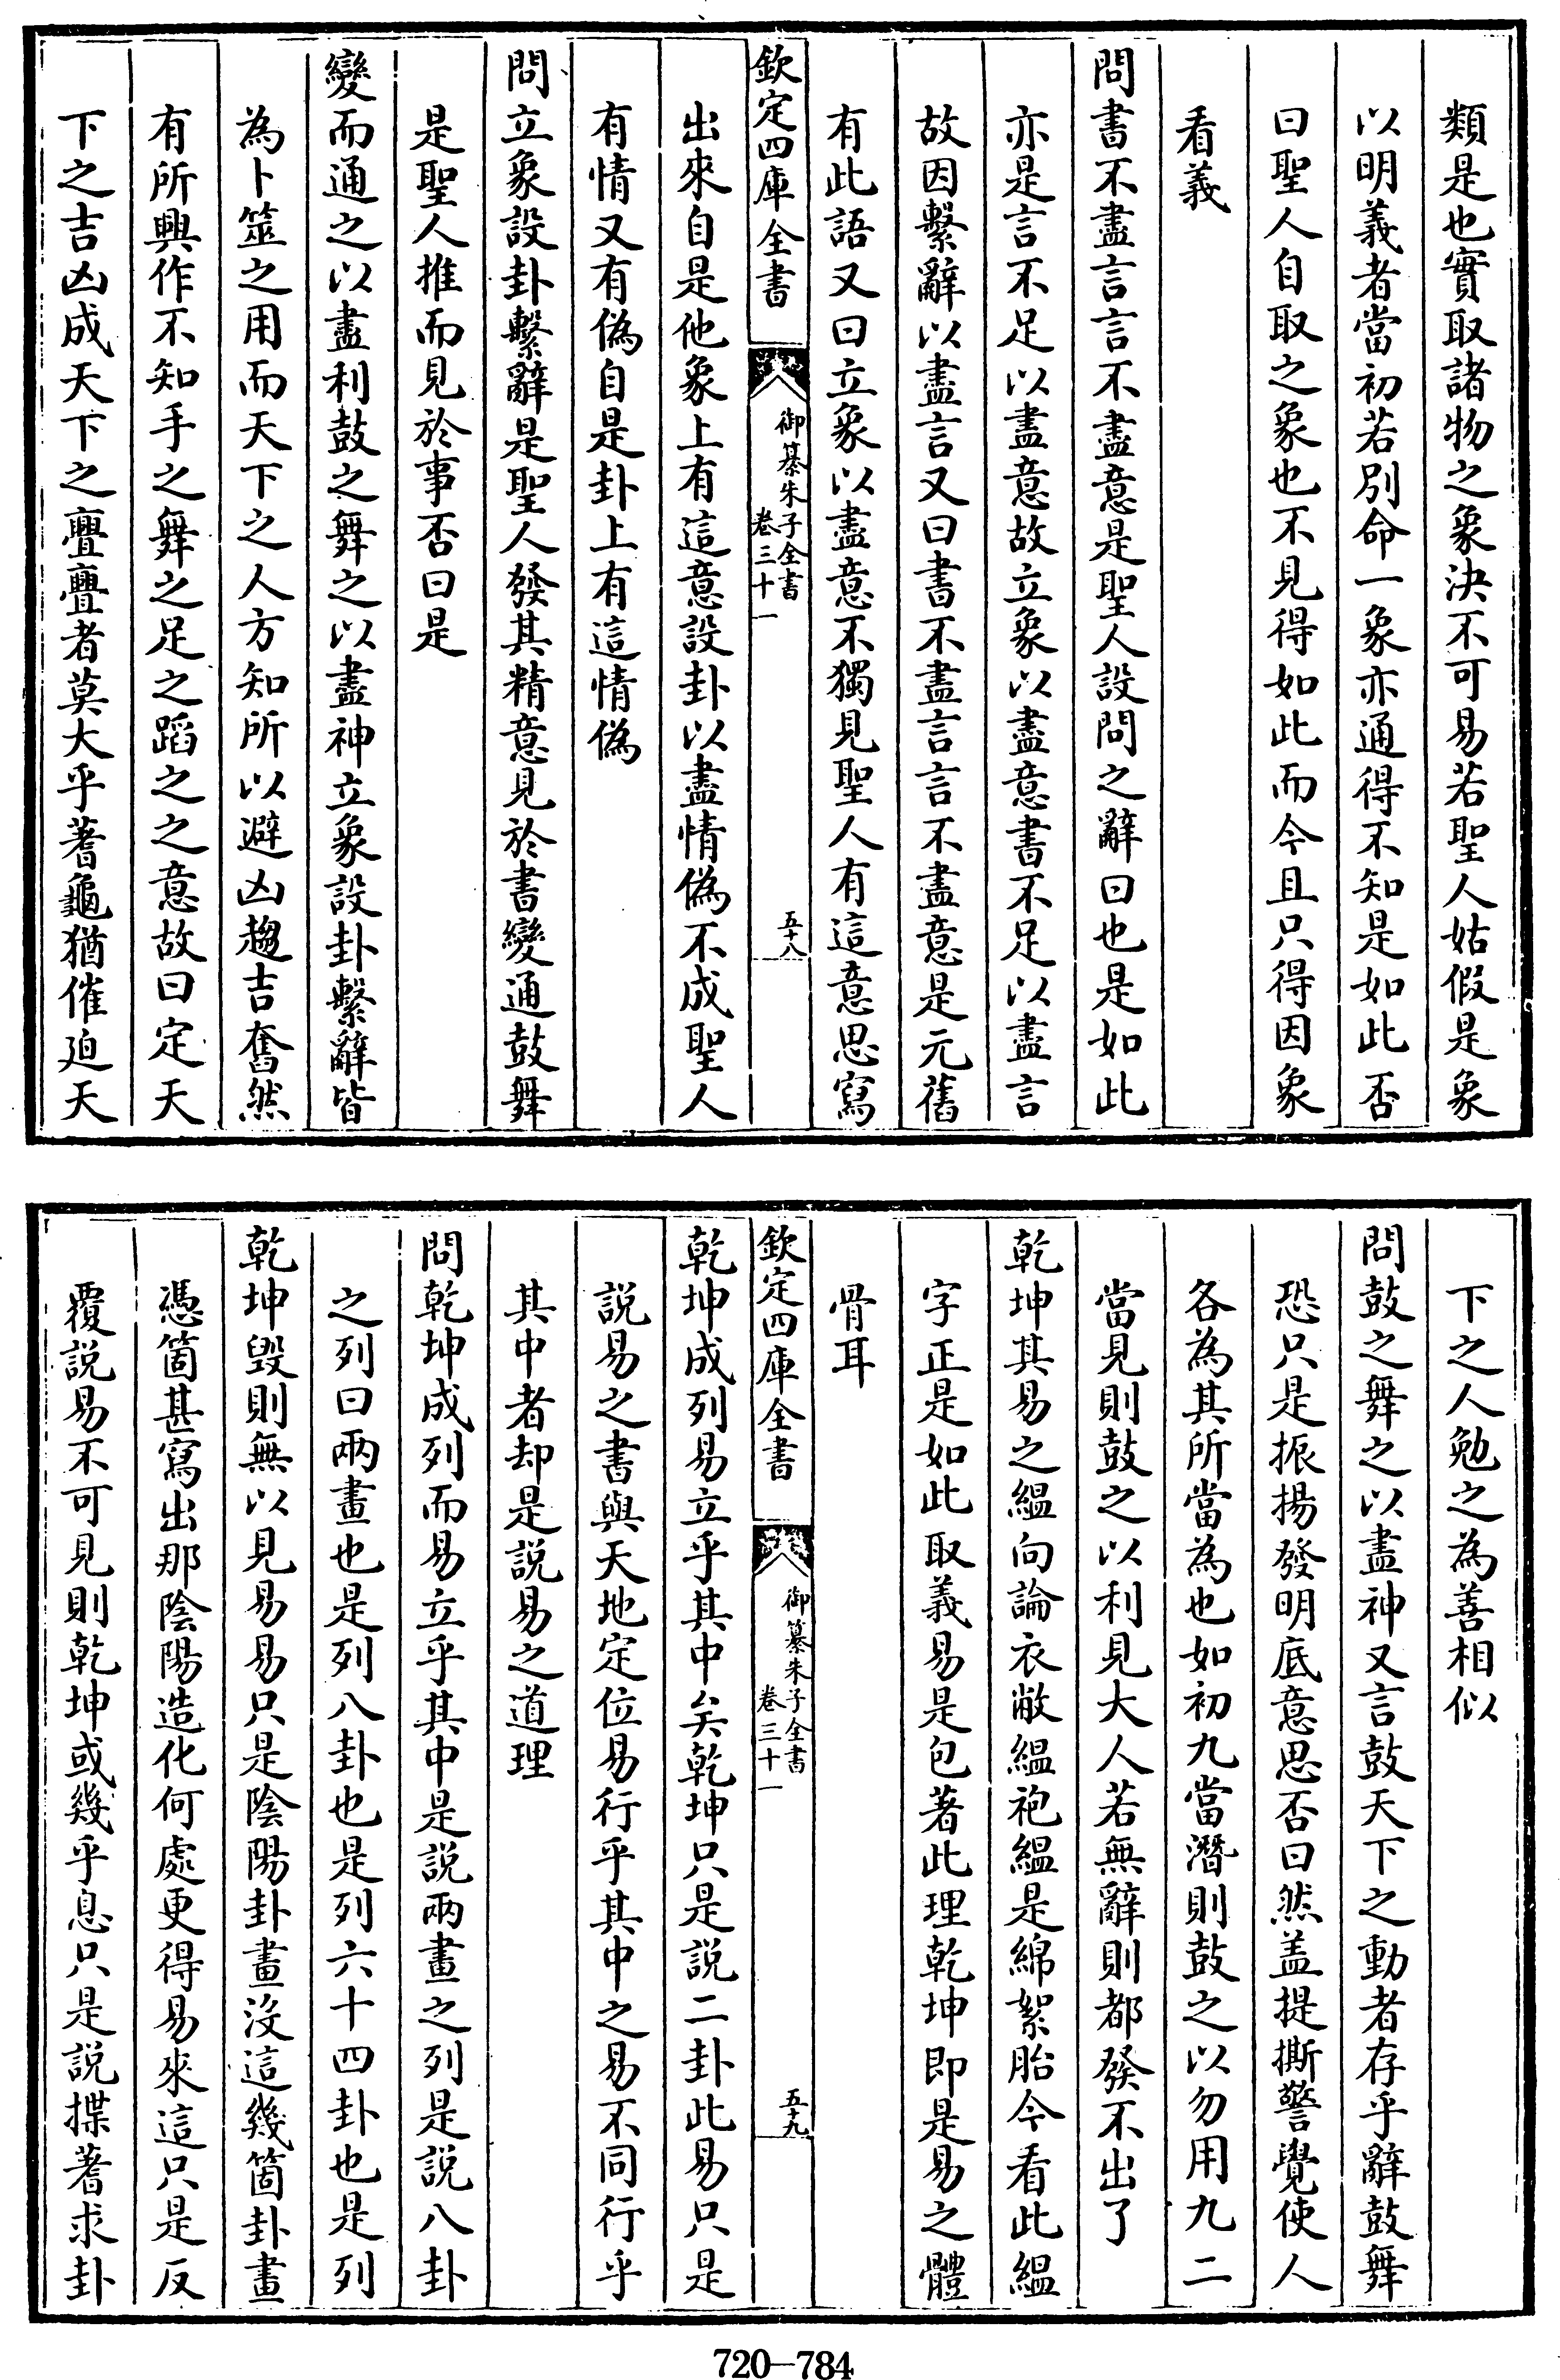 類是也實取諸物之象決不可易若聖人姑假是象
以明義者當初若別命一象亦通得不知是如此否
曰聖人自取之象也不見得如此而今且只得因象
看義
問書不盡言言不盡意是聖人設問之辭曰也是如此
亦是言不足以盡意故立象以盡意書不足以盡言
故因繫辭以盡言又曰書不盡言言不盡意是元舊
有此語又曰立象以盡意不獨見聖人有這意思寫
欽定四庫全書
御纂朱子全書
卷三十一
五十八
出來自是他象上有這意設卦以盡情偽不成聖人
有情又有偽自是卦上有這情偽
問立象設卦繫辭是聖人發其精意見於書變通鼓舞
是聖人推而見於事否曰是
變而通之以盡利鼓之舞之以盡神立象設卦繫辭皆
為卜筮之用而天下之人方知所以避凶趨吉奮然
有所興作不知手之舞之足之蹈之之意故曰定天
下之吉凶成天下之亹亹者莫大乎蓍龜猶催迫天
下之人勉之為善相似
問鼓之舞之以盡神又言鼓天下之動者存乎辭鼓舞
恐只是振揚發明底意思否曰然盖提撕警覺使人
各為其所當為也如初九當潛則鼓之以勿用九二
當見則鼓之以利見大人若無辭則都發不出了
乾坤其易之緼向論衣敝緼袍緼是綿絮胎今看此緼
字正是如此取義易是包著此理乾坤即是易之體
骨耳
欽定四庫全書
御纂朱子全書
卷三十一
五十九
乾坤成列易立乎其中矣乾坤只是説二卦此易只是
說易之書與天地定位易行乎其中之易不同行乎
其中者却是説易之道理
問乾坤成列而易立乎其中是説兩畫之列是説八卦
之列曰兩畫也是列八卦也是列六十四卦也是列
乾坤毁則無以見易易只是陰陽卦畫沒這幾箇卦畫
憑箇甚寫出那陰陽造化何處更得易來這只是反
覆説易不可見則乾坤或幾乎息只是説揲蓍求卦
720—784